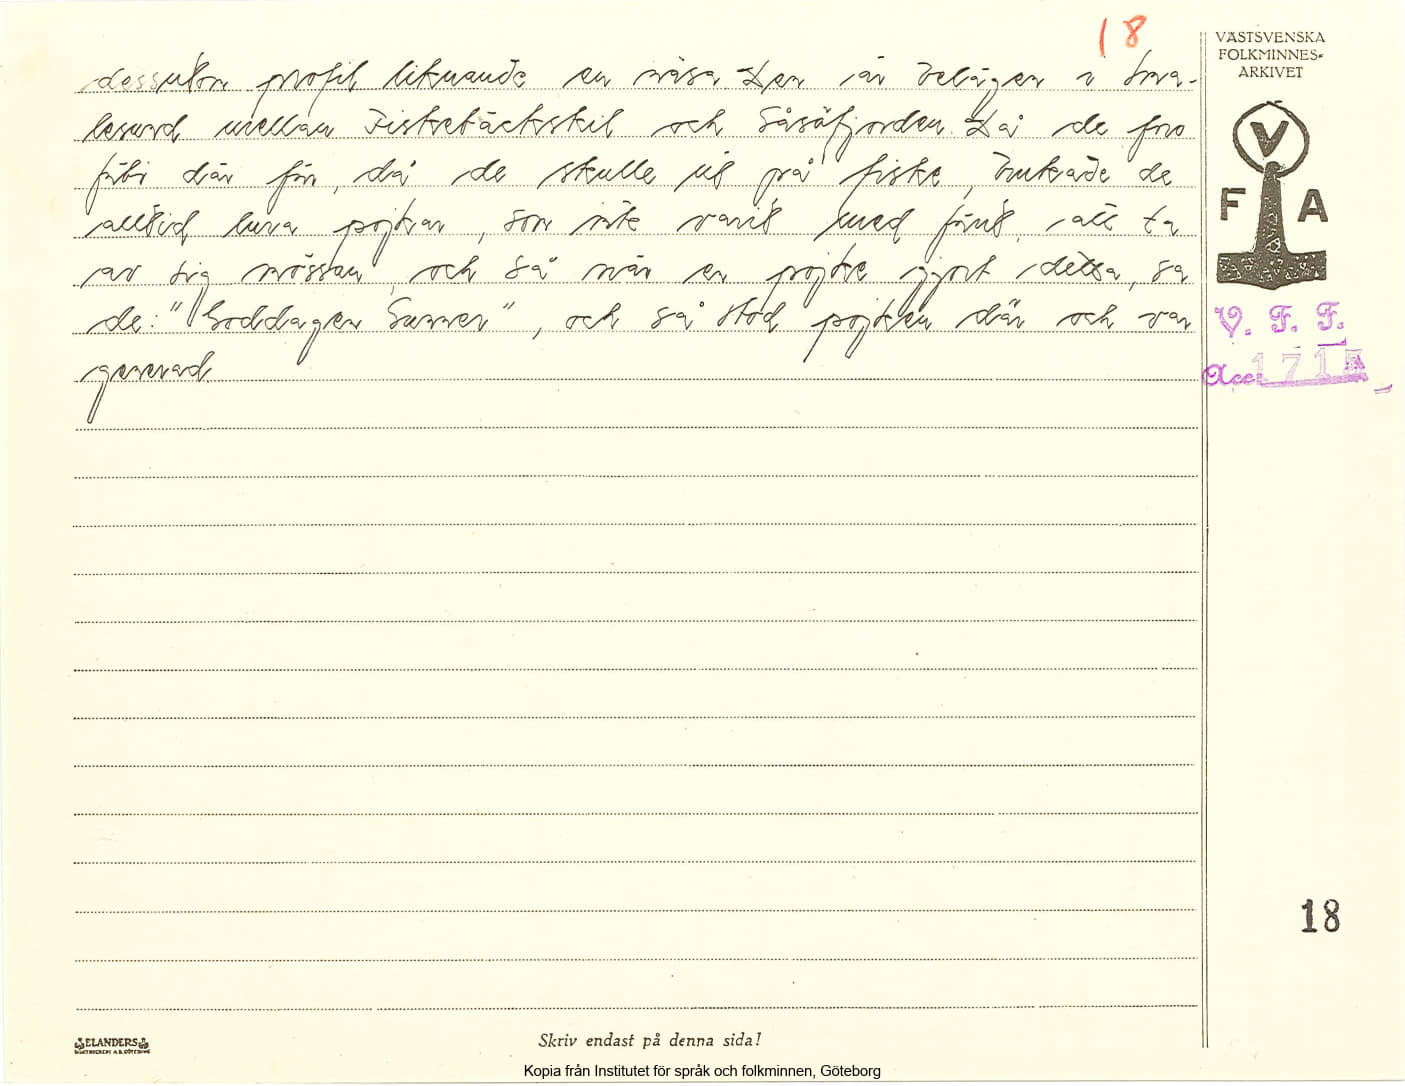 18
VÄSTSVENSKA
FOLKMINNES-
ARKIVET
dessutom profil liknande en näsa. Den är belägen i Sma-
lesund mellan Fiskebäckskil och Gåsöfjorden. Då de foro
förbi där förr, då de skulle ut på fiske, brukade de
alltid lura pojkar, som inte varit med förut, att ta
av sig mössan, och så när en pojke gjort detta, sa
de: "Goddagen Surver", och så stod pojken där och var
generad.
V
F A
V. F. F.
Acc. 1715
18
ELANDERS
Skriv endast på denna sida!
Kopia från Institutet för språk och folkminnen, Göteborg